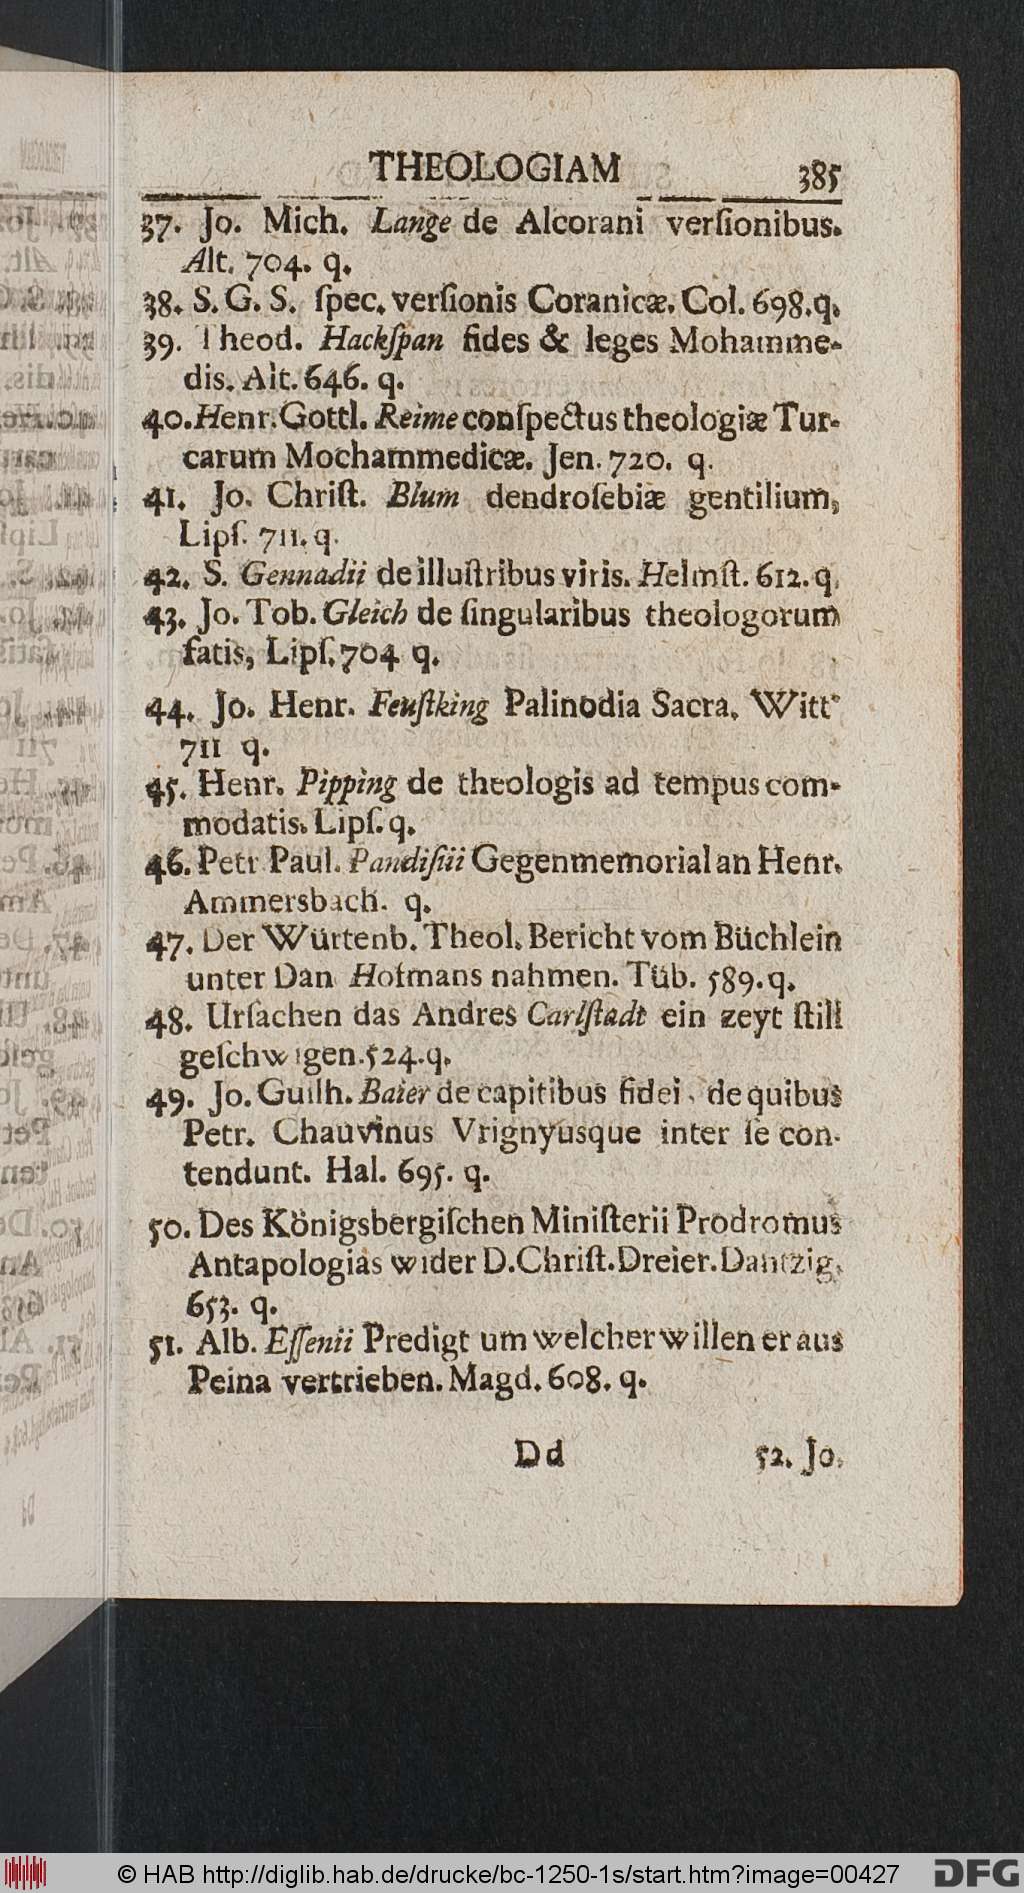 THEOLOGIAM 385
37. Jo. Mich. Lange de Alcorani verſionibus.
Alt. 704. q.
38. S. G. S. ſpec. verſionis Coranicæ. Col. 698. q.
39. Theod. Hackſpan fides & leges Mohamme-
dis. Alt. 646. q.
40. Henr. Gottl. Reime conſpectus theologiæ Tur-
carum Mochammedicæ. Jen. 720. q.
41. Jo. Chriſt. Blum dendroſebiæ gentilium,
Lipſ. 711. q.
42. S. Gennadii de illuſtribus viris. Helmſt. 612. q.
43. Jo. Tob. Gleich de ſingularibus theologorum
fatis, Lipſ. 704 q.
44. Jo. Henr. Feuſtking Palinodia Sacra. Witt.
711 q.
45. Henr. Pipping de theologis ad tempus com-
modatis. Lipſ. q.
46. Petr Paul. Pandiſii Gegenmemorial an Henr.
Ammersbach. q.
47. Der Würtenb. Theol. Bericht vom Büchlein
unter Dan Hofmans nahmen. Tüb. 589. q.
48. Urſachen das Andres Carlſtadt ein zeyt ſtill
geſchwigen. 524. q.
49. Jo. Guilh. Baier de capitibus fidei, de quibus
Petr. Chauvinus Vrignyusque inter ſe con-
tendunt. Hal. 695. q.
50. Des Königsbergiſchen Miniſterii Prodromus
Antapologias wider D. Chriſt. Dreier. Dantzig.
653. q.
51. Alb. Eſſenii Predigt um welcher willen er aus
Peina vertrieben. Magd. 608. q.
Dd 52. Jo.
© HAB http://diglib.hab.de/drucke/bc-1250-1s/start.htm?image=00427
DFG